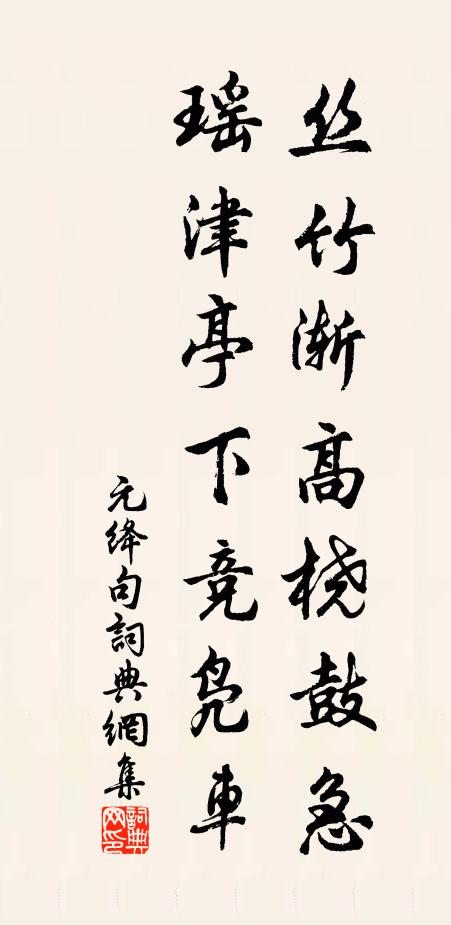 丝竹渐高桡鼓急
瑶津亭下竞凫车
元绛句詞典網集
詞典網印